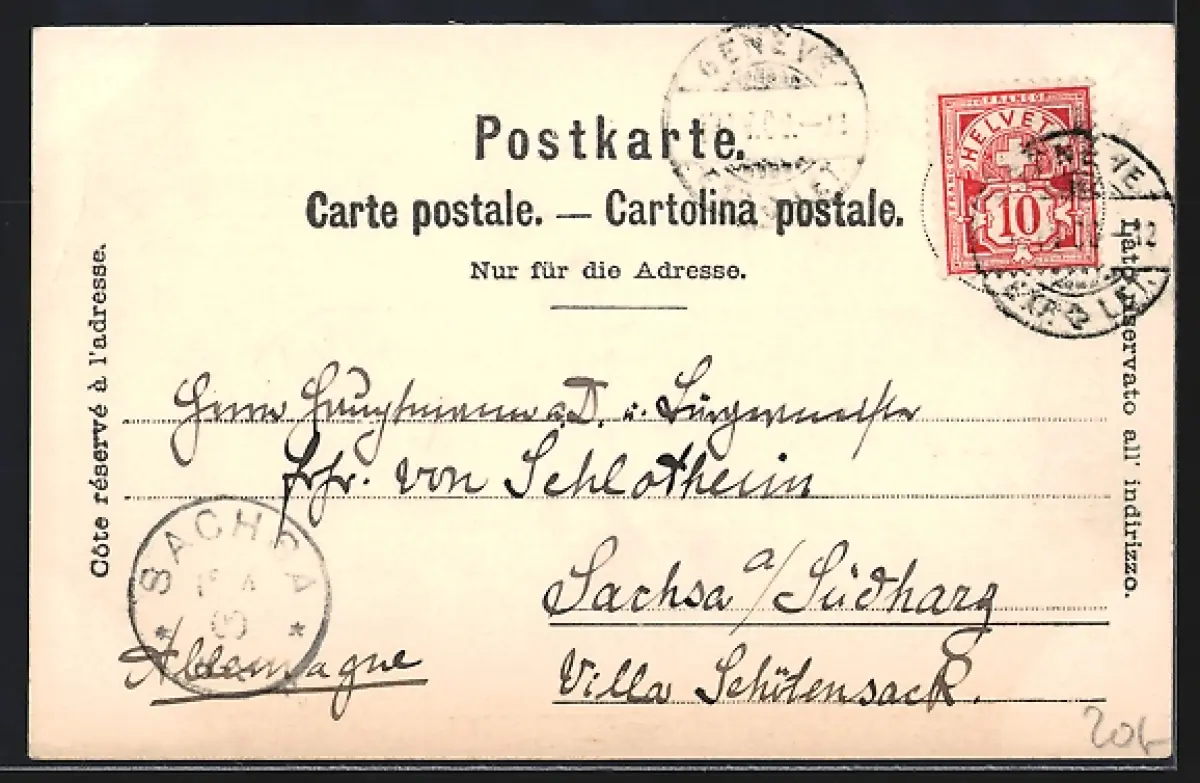 GENÈVE
Postkarte.
Carte postale. — Cartolina postale.
Nur für die Adresse.
Côte réservé à l'adresse.
Lato riservato all' indirizzo.
FRANCO
HELVETIA
10
GENÈVE
EXP. LET.
Herrn Hauptmann a. D. u. Bürgermeister
Frhr. von Schlotheim
Sachsa a/Südharz
Villa Schötensack.
Allemagne
SACHSA
20b